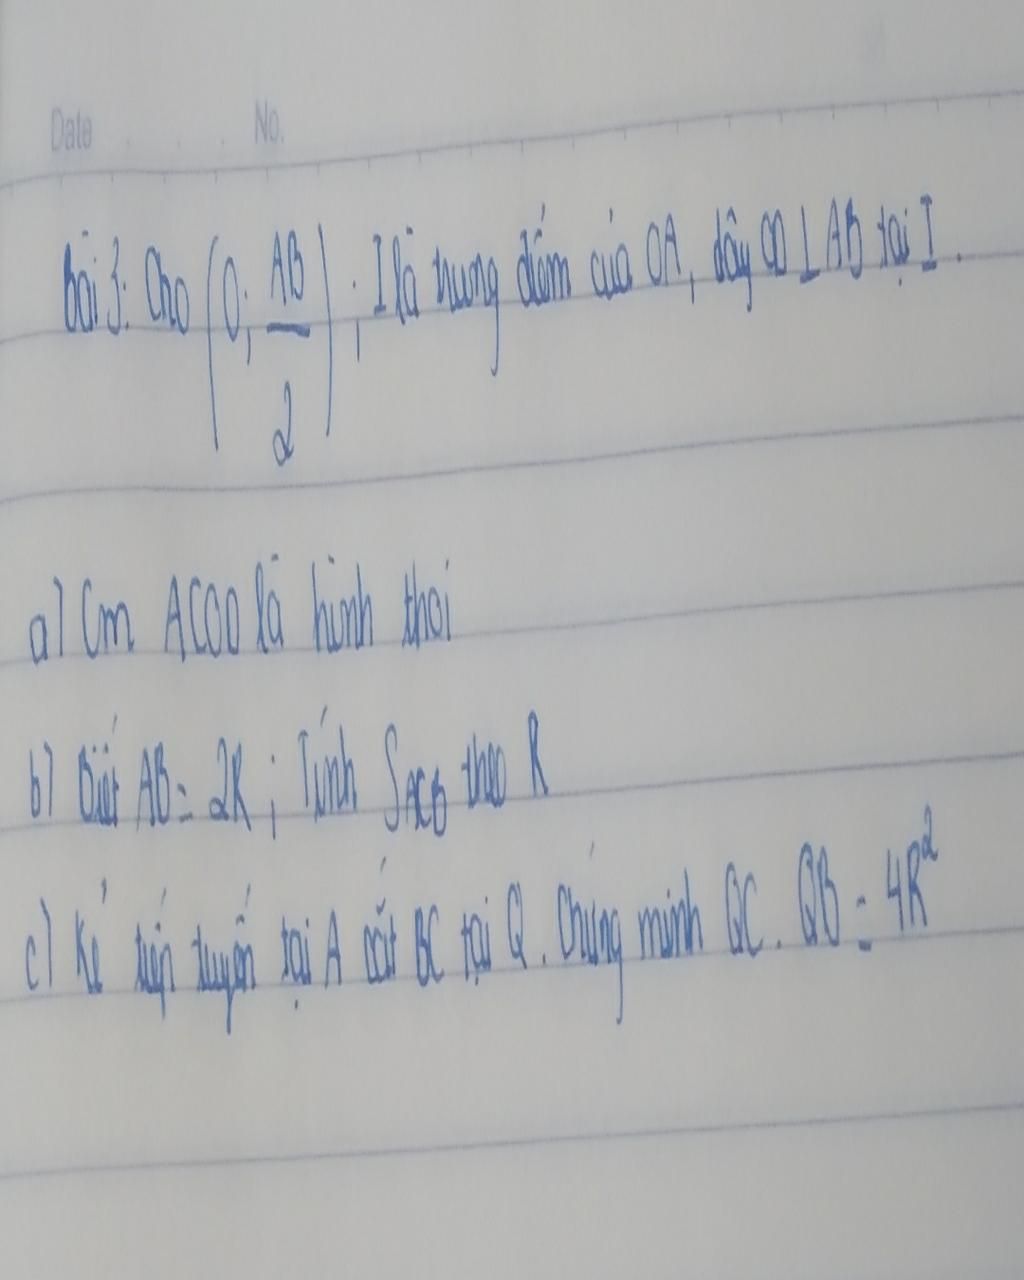 Date No.
Bài 3: Cho (O; AB/2); I là trung điểm của OA, dây CD ⊥ AB tại I.
a) Cm ACOD là hình thoi
b) Biết AB = 2R; Tính SACB theo R
c) Kẻ tiếp tuyến tại A cắt BC tại Q. Chứng minh QC. QB = 4R²